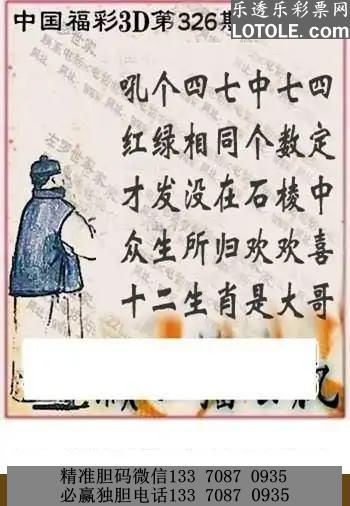 乐透乐彩票网
中国福彩3D第326期
WWW.LOTOLE.COM
吼个四七中七四
红绿相同个数定
才发没在石棱中
众生所归欢欢喜
十二生肖是大哥
精准胆码微信133 7087 0935
必赢独胆电话133 7087 0935